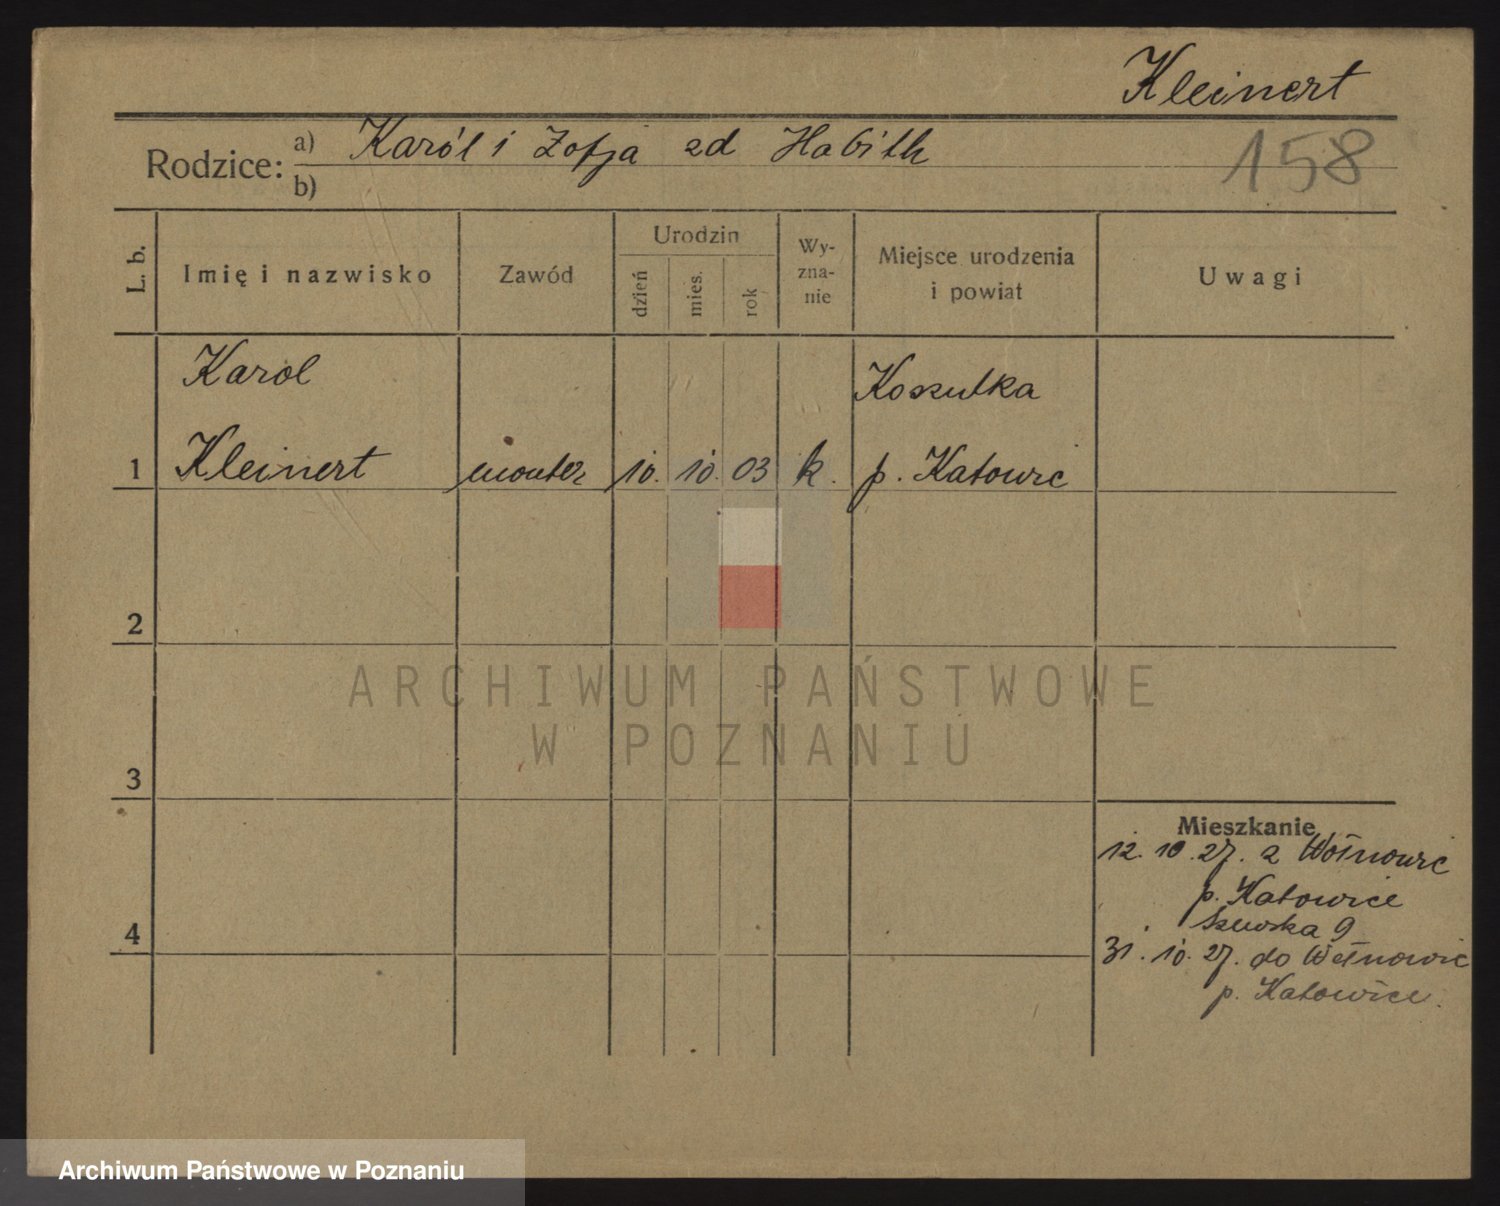 Kleinert
Rodzice: a) Karól i Zofja zd Habith
158
b)
L. b.
Imię i nazwisko
Zawód
Urodzin
dzień
mies.
rok
Wy-
zna-
nie
Miejsce urodzenia
i powiat
Uwagi
Karol
Koszutka
1 Kleinert monter 10. 10. 03 k. p. Katowic
2
ARCHIWUM PAŃSTWOWE
W POZNANIU
3
Mieszkanie
12. 10. 27. z Wełnowic
p. Katowice
Szewska 9
4
31. 10. 27. do Wełnowic
p. Katowice.
Archiwum Państwowe w Poznaniu